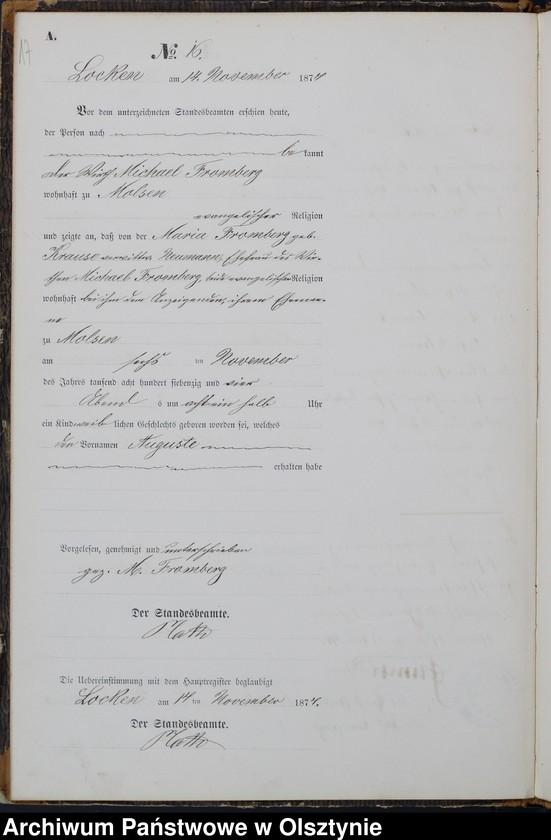 A.
17
№ 16.
Locken am 14. November 1874
Vor dem unterzeichneten Standesbeamten erschien heute,
der Person nach
be kannt
der Wirth Michael Fromberg
wohnhaft zu Molsen
evangelischer Religion
und zeigte an, daß von der Maria Fromberg geb.
Krause verwittw. Neumann, Ehefrau des Wir-
then Michael Fromberg, beide evangelischer Religion
wohnhaft bei ihm dem Anzeigenden, ihrem Eheman-
ne
zu Molsen
am sechs ten November
des Jahrs tausend acht hundert siebenzig und vier
Abend s um acht ein halb Uhr
ein Kind weib lichen Geschlechts geboren worden sei, welches
den Vornamen Auguste
erhalten habe
Vorgelesen, genehmigt und unterschrieben
gez. M. Fromberg
Der Standesbeamte.
Die Uebereinstimmung mit dem Hauptregister beglaubigt
Locken am 14 ten November 1874.
Der Standesbeamte.
Archiwum Państwowe w Olsztynie